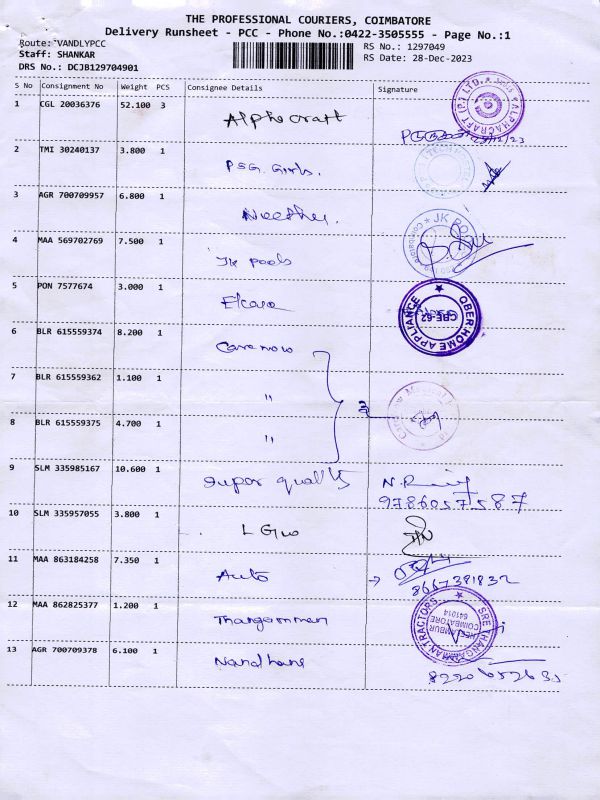 THE PROFESSIONAL COURIERS, COIMBATORE
Delivery Runsheet - PCC - Phone No.:0422-3505555 - Page No.:1
Route: VANDLYPCC
Staff: SHANKAR
DRS No.: DCJB129704901
RS No.: 1297049
RS Date: 28-Dec-2023
S No Consignment No Weight PCS Consignee Details Signature
1 CGL 20036376 52.100 3 Alphacraft
2 TMI 30240137 3.800 1 PSG. Girls.
3 AGR 700709957 6.800 1
4 MAA 569702769 7.500 1 JK pools
JK PO
5 PON 7577674 3.000 1 Elcara
OBERHOME APPLIANCE
CBE-62
6 BLR 615559374 8.200 1 Carenow
7 BLR 615559362 1.100 1 "
8 BLR 615559375 4.700 1 "
9 SLM 335985167 10.600 1 Super quality
9786057587
10 SLM 335957055 3.800 1
11 MAA 863184258 7.350 1 Auto
8667381832
12 MAA 862825377 1.200 1 Thangamman
COIMBATORE
641014
13 AGR 700709378 6.100 1 Nandhana